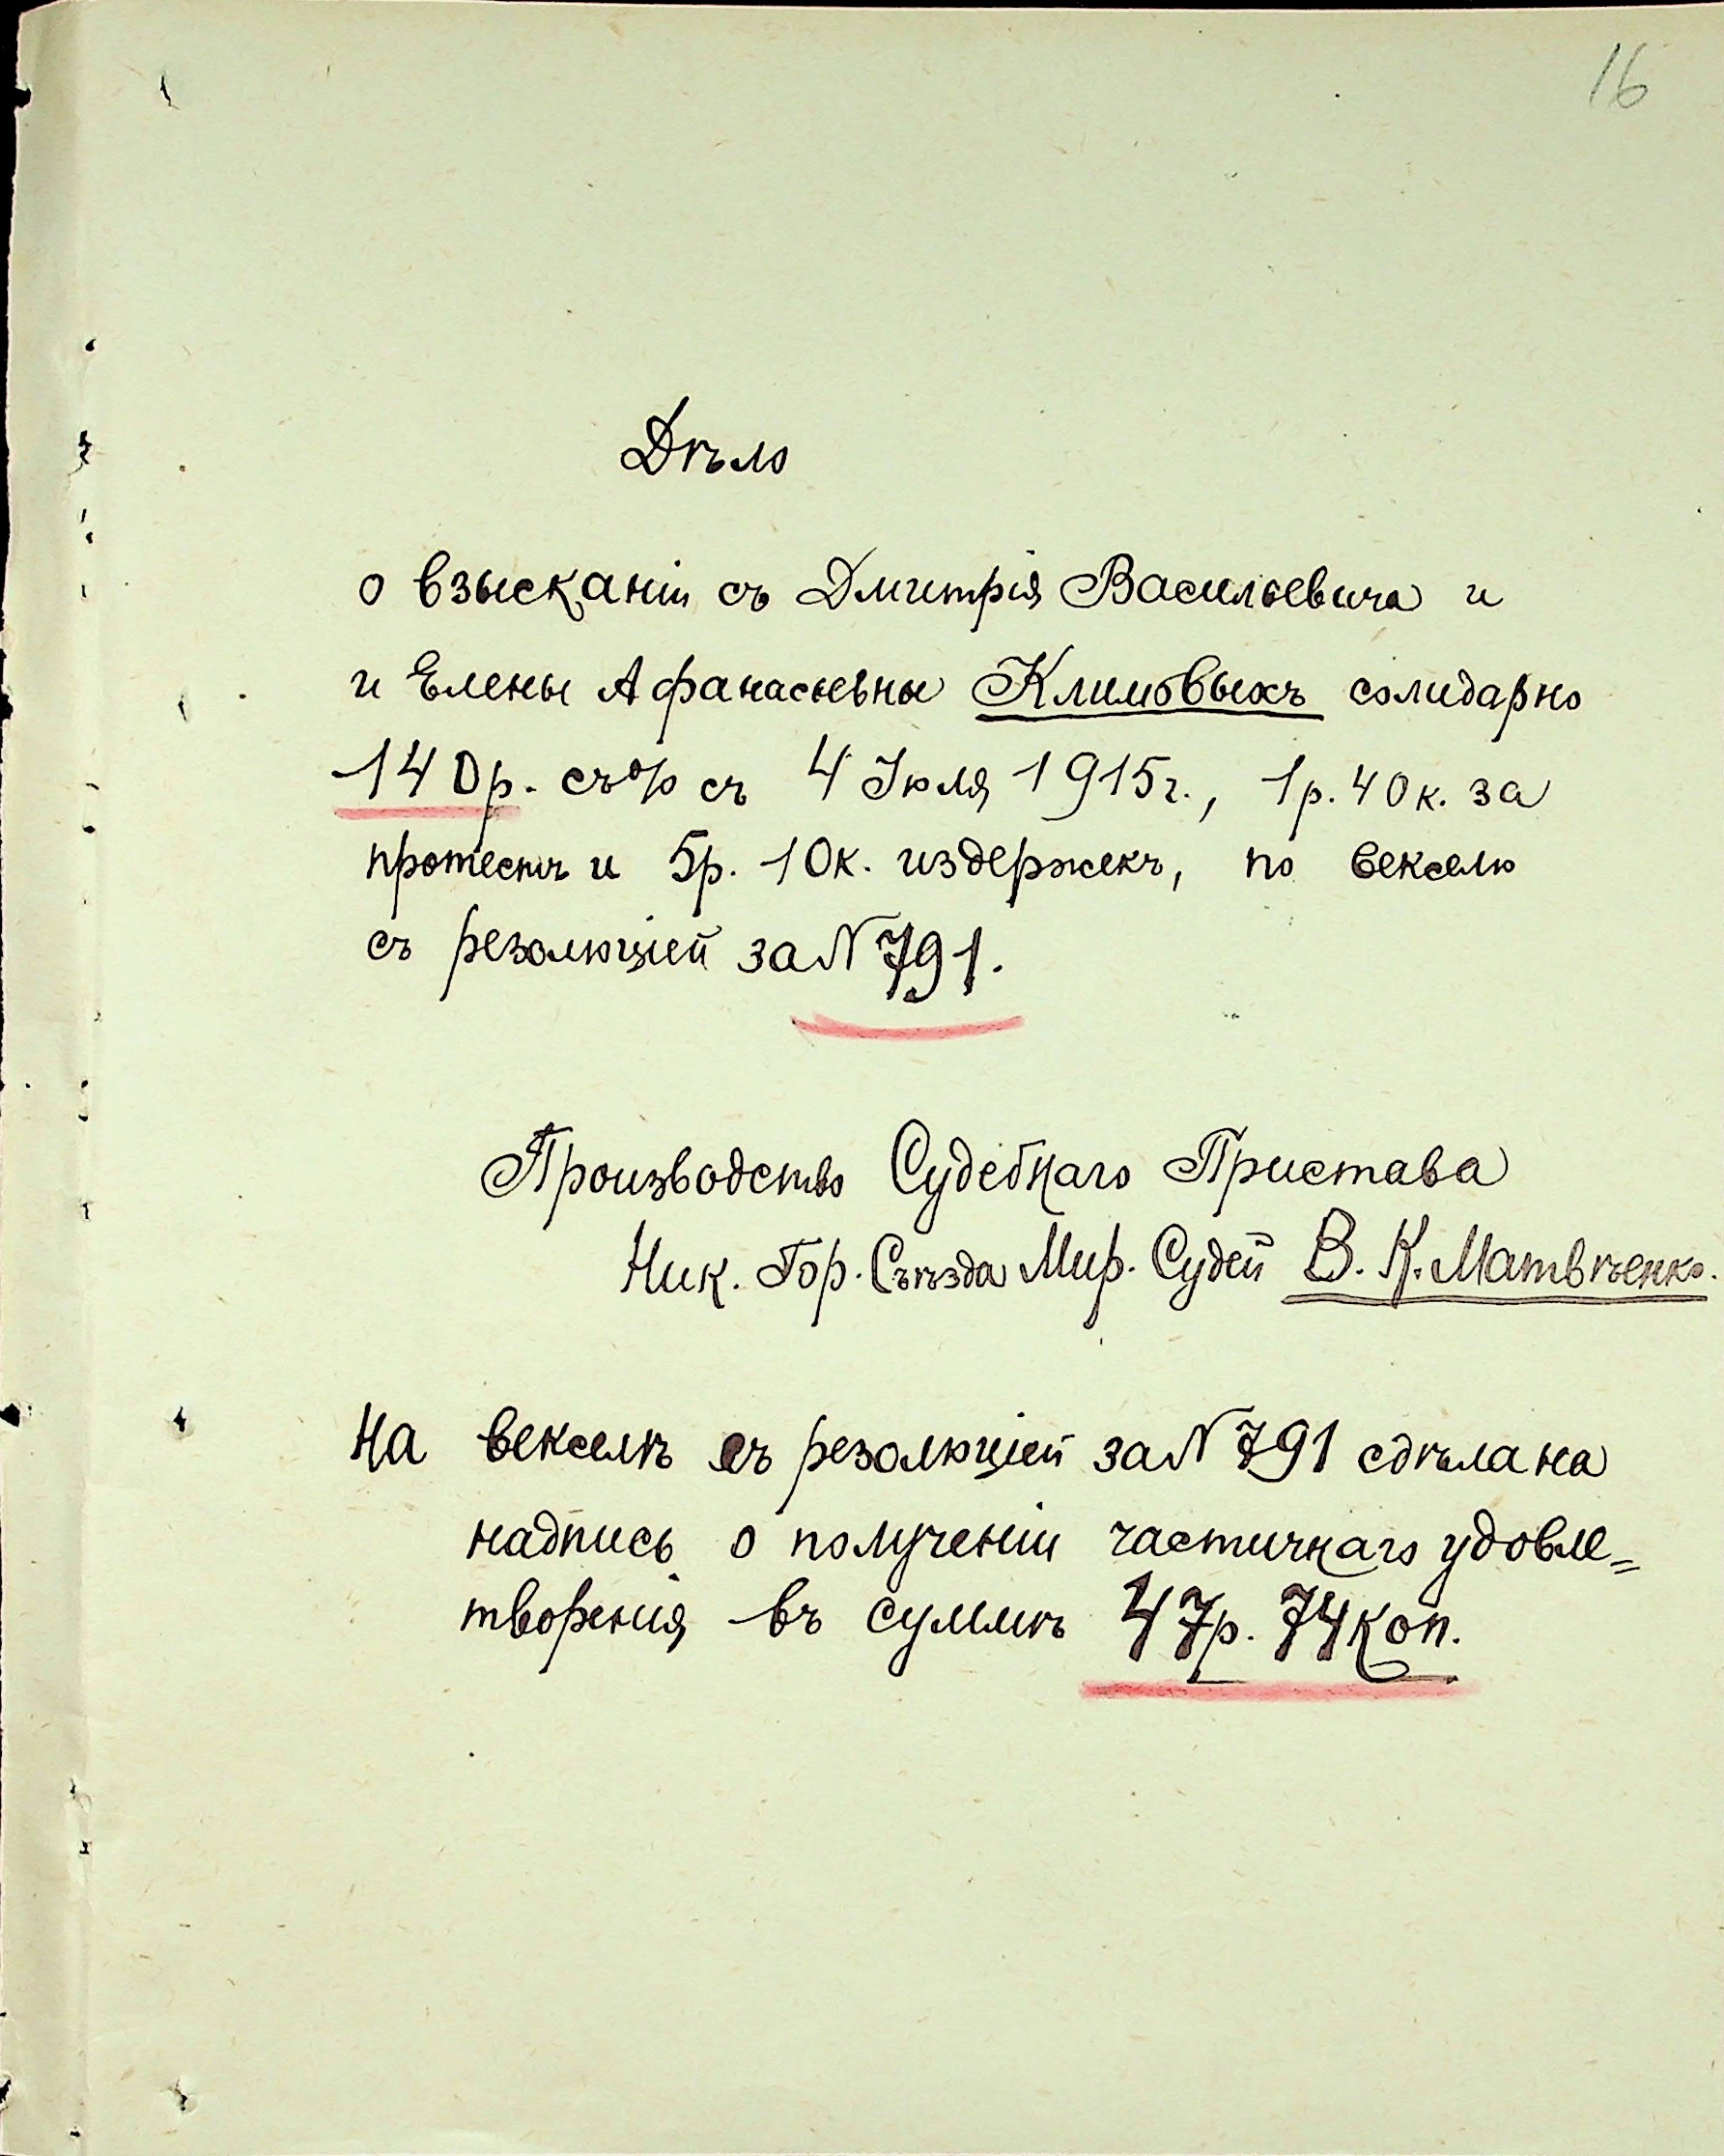 16
Дѣло
о взысканіи съ Дмитрія Васильевича и
и Елены Афанасьевны Климовыхъ солидарно
140р. съ % съ 4 Іюля 1915г., 1р. 40к. за
протестъ и 5р. 10к. издержекъ, по векселю
съ резолюціей за N 791.
Производство Судебнаго Пристава
Ник. Гор. Съѣзда Мир. Судей В. К. Матвѣенко.
На векселѣ съ резолюціей за N 791 сдѣлана
надпись о полученіи частичнаго удовле=
творенія въ суммѣ 47р. 74коп.